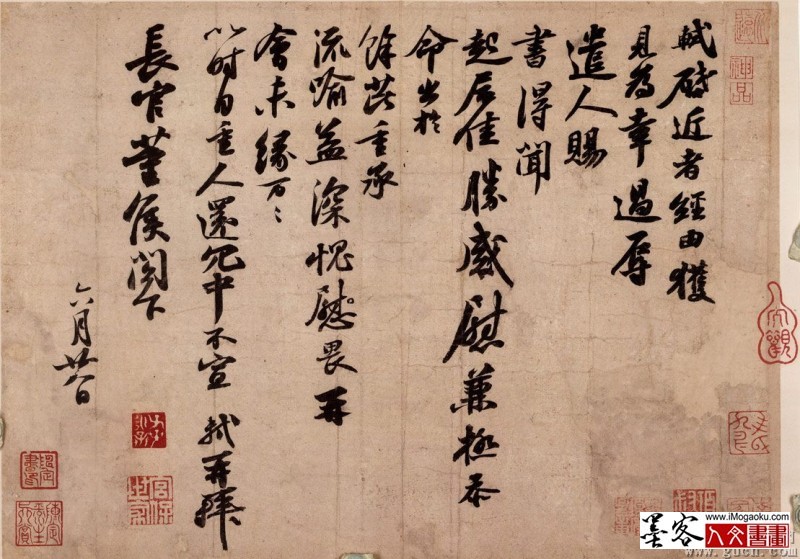 軾啟近者經由獲
見為幸過辱
遣人賜
書得聞
起居佳勝感慰兼極忝
命出於
餘芘重承
流喻益深愧慰畏再
會未緣万〻
以时自重人還冗中不宣 軾再拜
長官董侯閣下
六月廿八日
神品
www.iMogaoku.com
墨客
人文書畫